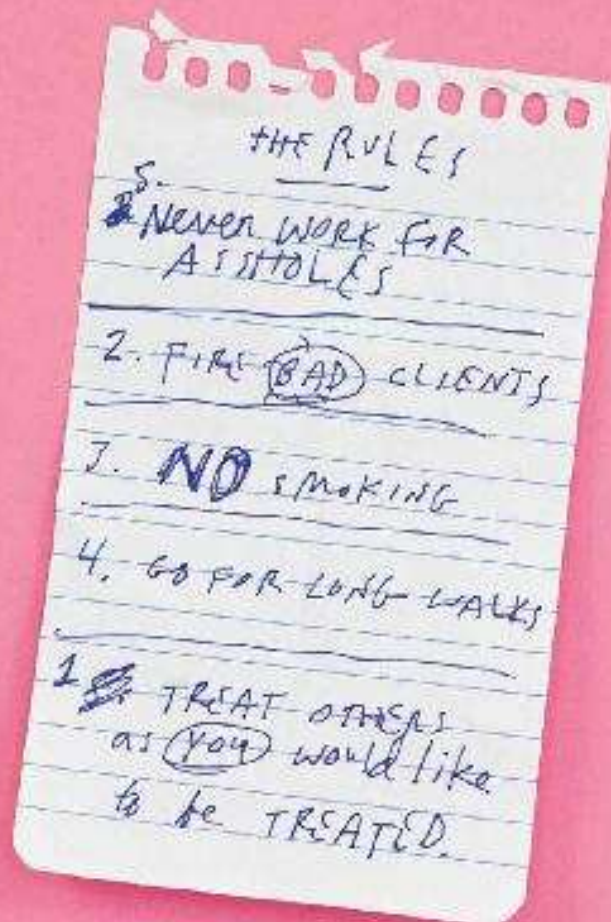 THE RULES
5.
Never WORK FOR
ASSHOLES
2. FIRE BAD CLIENTS
3. NO SMOKING
4. GO FOR LONG WALKS
1 TREAT OTHERS
as you would like
to be TREATED.